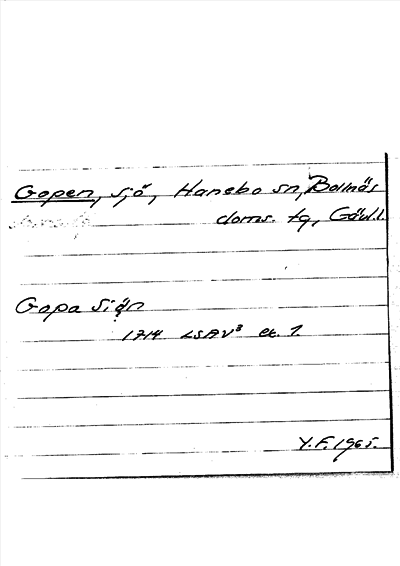 Gopen, sjö, Hanebo sn, Bollnäs
doms. tg, Gävl.l.
Gopa Siön
1714 LSAV³ et. 1.
Y.F. 1965.